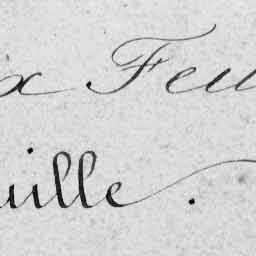 x Feu
uille.